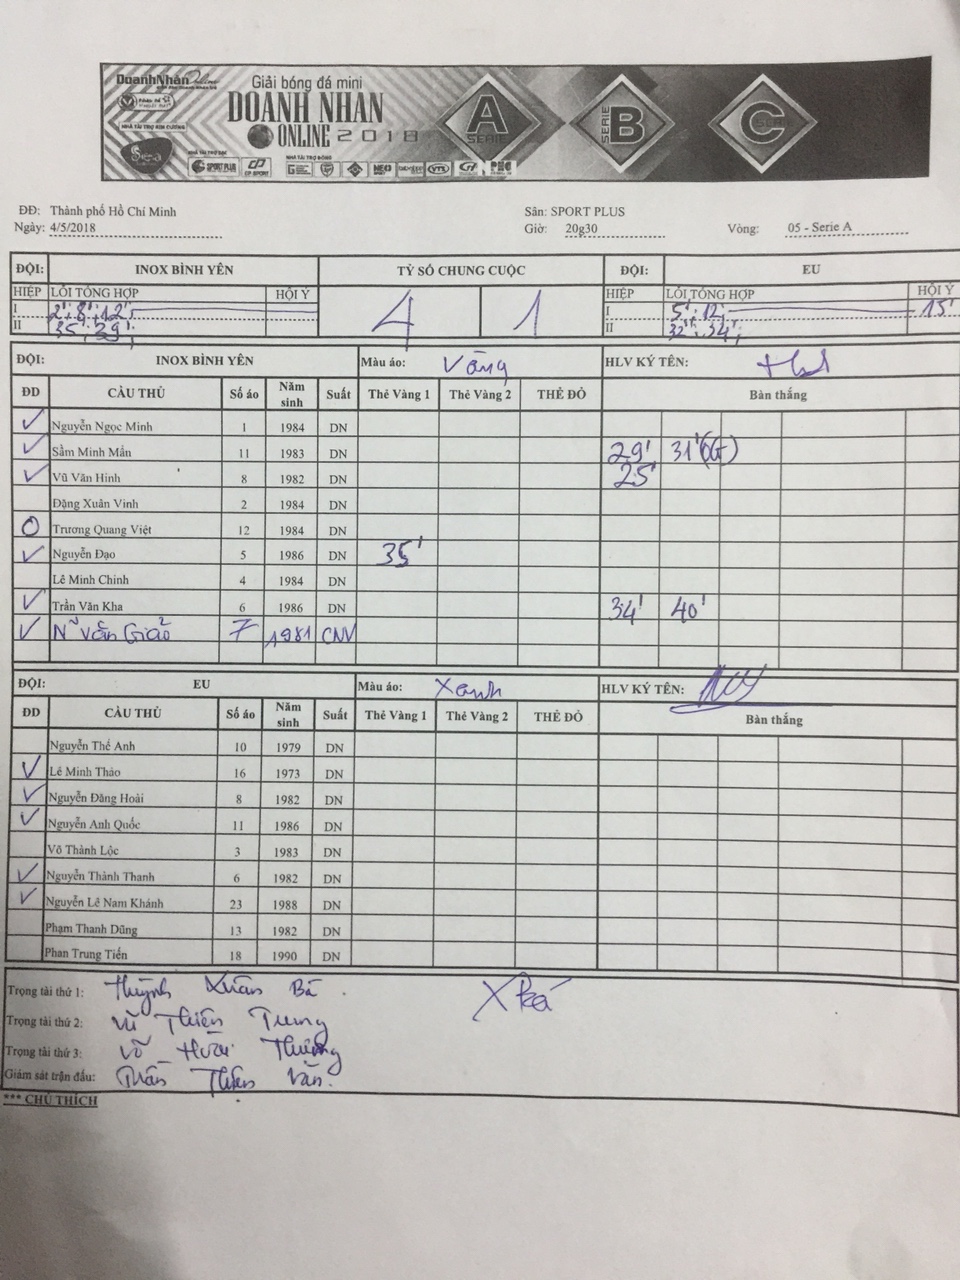 DoanhNhanOnline
Giải bóng đá mini
DOANH NHAN
ONLINE 2018
A
SERIE
SERIE
B
C
NHÀ TÀI TRỢ KIM CƯƠNG
Sea
NHÀ TÀI TRỢ BẠC
NHÀ TÀI TRỢ ĐỒNG
SPORT PLUS
CP-SPORT
ĐĐ: Thành phố Hồ Chí Minh Sân: SPORT PLUS
Ngày: 4/5/2018 Giờ: 20g30 Vòng: 05 - Serie A
ĐỘI: INOX BÌNH YÊN TỶ SỐ CHUNG CUỘC ĐỘI: EU
HIỆP LỖI TỔNG HỢP HỘI Ý 4 1 HIỆP LỖI TỔNG HỢP HỘI Ý
I 2', 8', 12' I 5', 12' 15'
II 35', 39' II 32', 34'
ĐỘI: INOX BÌNH YÊN Màu áo: Vàng HLV KÝ TÊN:
ĐD CẦU THỦ Số áo Năm sinh Suất Thẻ Vàng 1 Thẻ Vàng 2 THẺ ĐỎ Bàn thắng
Nguyễn Ngọc Minh 1 1984 DN
Sầm Minh Mẫn 11 1983 DN 29' 31' (OG)
Vũ Văn Hinh 8 1982 DN 25'
Đặng Xuân Vinh 2 1984 DN
O Trương Quang Việt 12 1984 DN
Nguyễn Đạo 5 1986 DN 35'
Lê Minh Chinh 4 1984 DN
Trần Văn Kha 6 1986 DN 34' 40'
Ng Văn Giáo 7 1981 CNV
ĐỘI: EU Màu áo: Xanh HLV KÝ TÊN:
ĐD CẦU THỦ Số áo Năm sinh Suất Thẻ Vàng 1 Thẻ Vàng 2 THẺ ĐỎ Bàn thắng
Nguyễn Thế Anh 10 1979 DN
Lê Minh Thảo 16 1973 DN
Nguyễn Đăng Hoài 8 1982 DN
Nguyễn Anh Quốc 11 1986 DN
Võ Thành Lộc 3 1983 DN
Nguyễn Thành Thanh 6 1982 DN
Nguyễn Lê Nam Khánh 23 1988 DN
Phạm Thanh Dũng 13 1982 DN
Phan Trung Tiến 18 1990 DN
Trọng tài thứ 1: Huỳnh Xuân Bá
Trọng tài thứ 2: Thiên Trung
Trọng tài thứ 3: Võ Hoài Thương
Giám sát trận đấu: Trần Thiện Văn.
*** CHÚ THÍCH